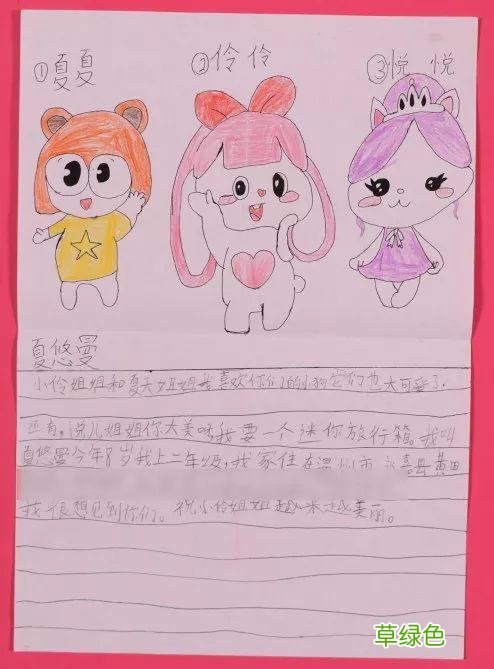 ①夏夏 ②伶伶 ③悦悦
夏悠曼
小伶姐姐和夏天姐姐我喜欢你们的小狗它们也太可爱了,
还有,悦儿姐姐你太美味我要一个迷你旅行箱。我叫
夏悠曼今年8岁我上二年级,我家住在温州市永嘉县黄田
我很想见到你们。祝小伶姐姐越来越美丽。
草绿色